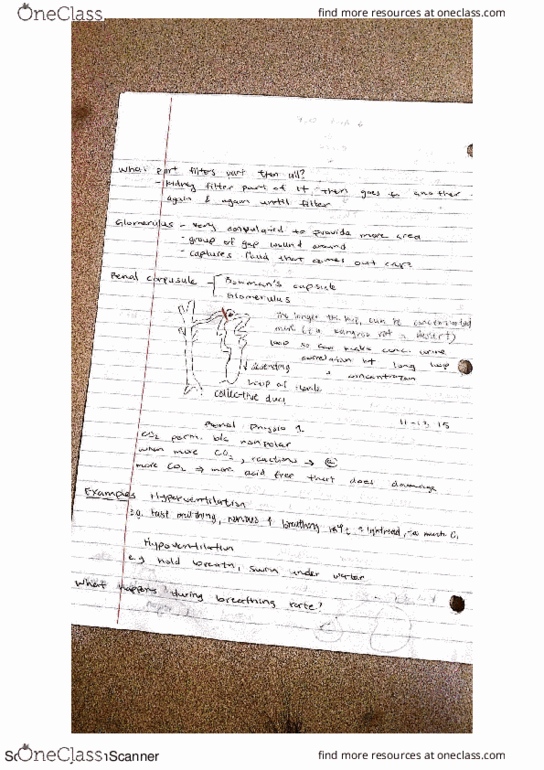 OneClass
find more resources at oneclass.com
What part filters part then all?
- Kidney filter part of it, then goes to another
again & again until filter
Glomerulus - very convoluted to provide more area
- group of cap wound around
- captures fluid that comes out caps
Renal corpuscule - Bowman's capsule
Glomerulus
The longer the loop, can be concentrated
more (i.e kangroo rat in desert)
loop so can make conc. urine
correlation bt long loop
& concentration
descending
loop of Henle
collective duct
Renal Physio 1
11-13, 15
CO2 perm. b/c nonpolar
when more CO2, reactions →
more CO2 ⇒ more acid free that does damage
Examples Hyperventilation
e.g. fast breathing, nervous ↑ breathing rate, lightheaded,
Hypoventilation
e.g hold breath, swim under water
What happens during breathing rate?
OneClass
Scanner
find more resources at oneclass.com